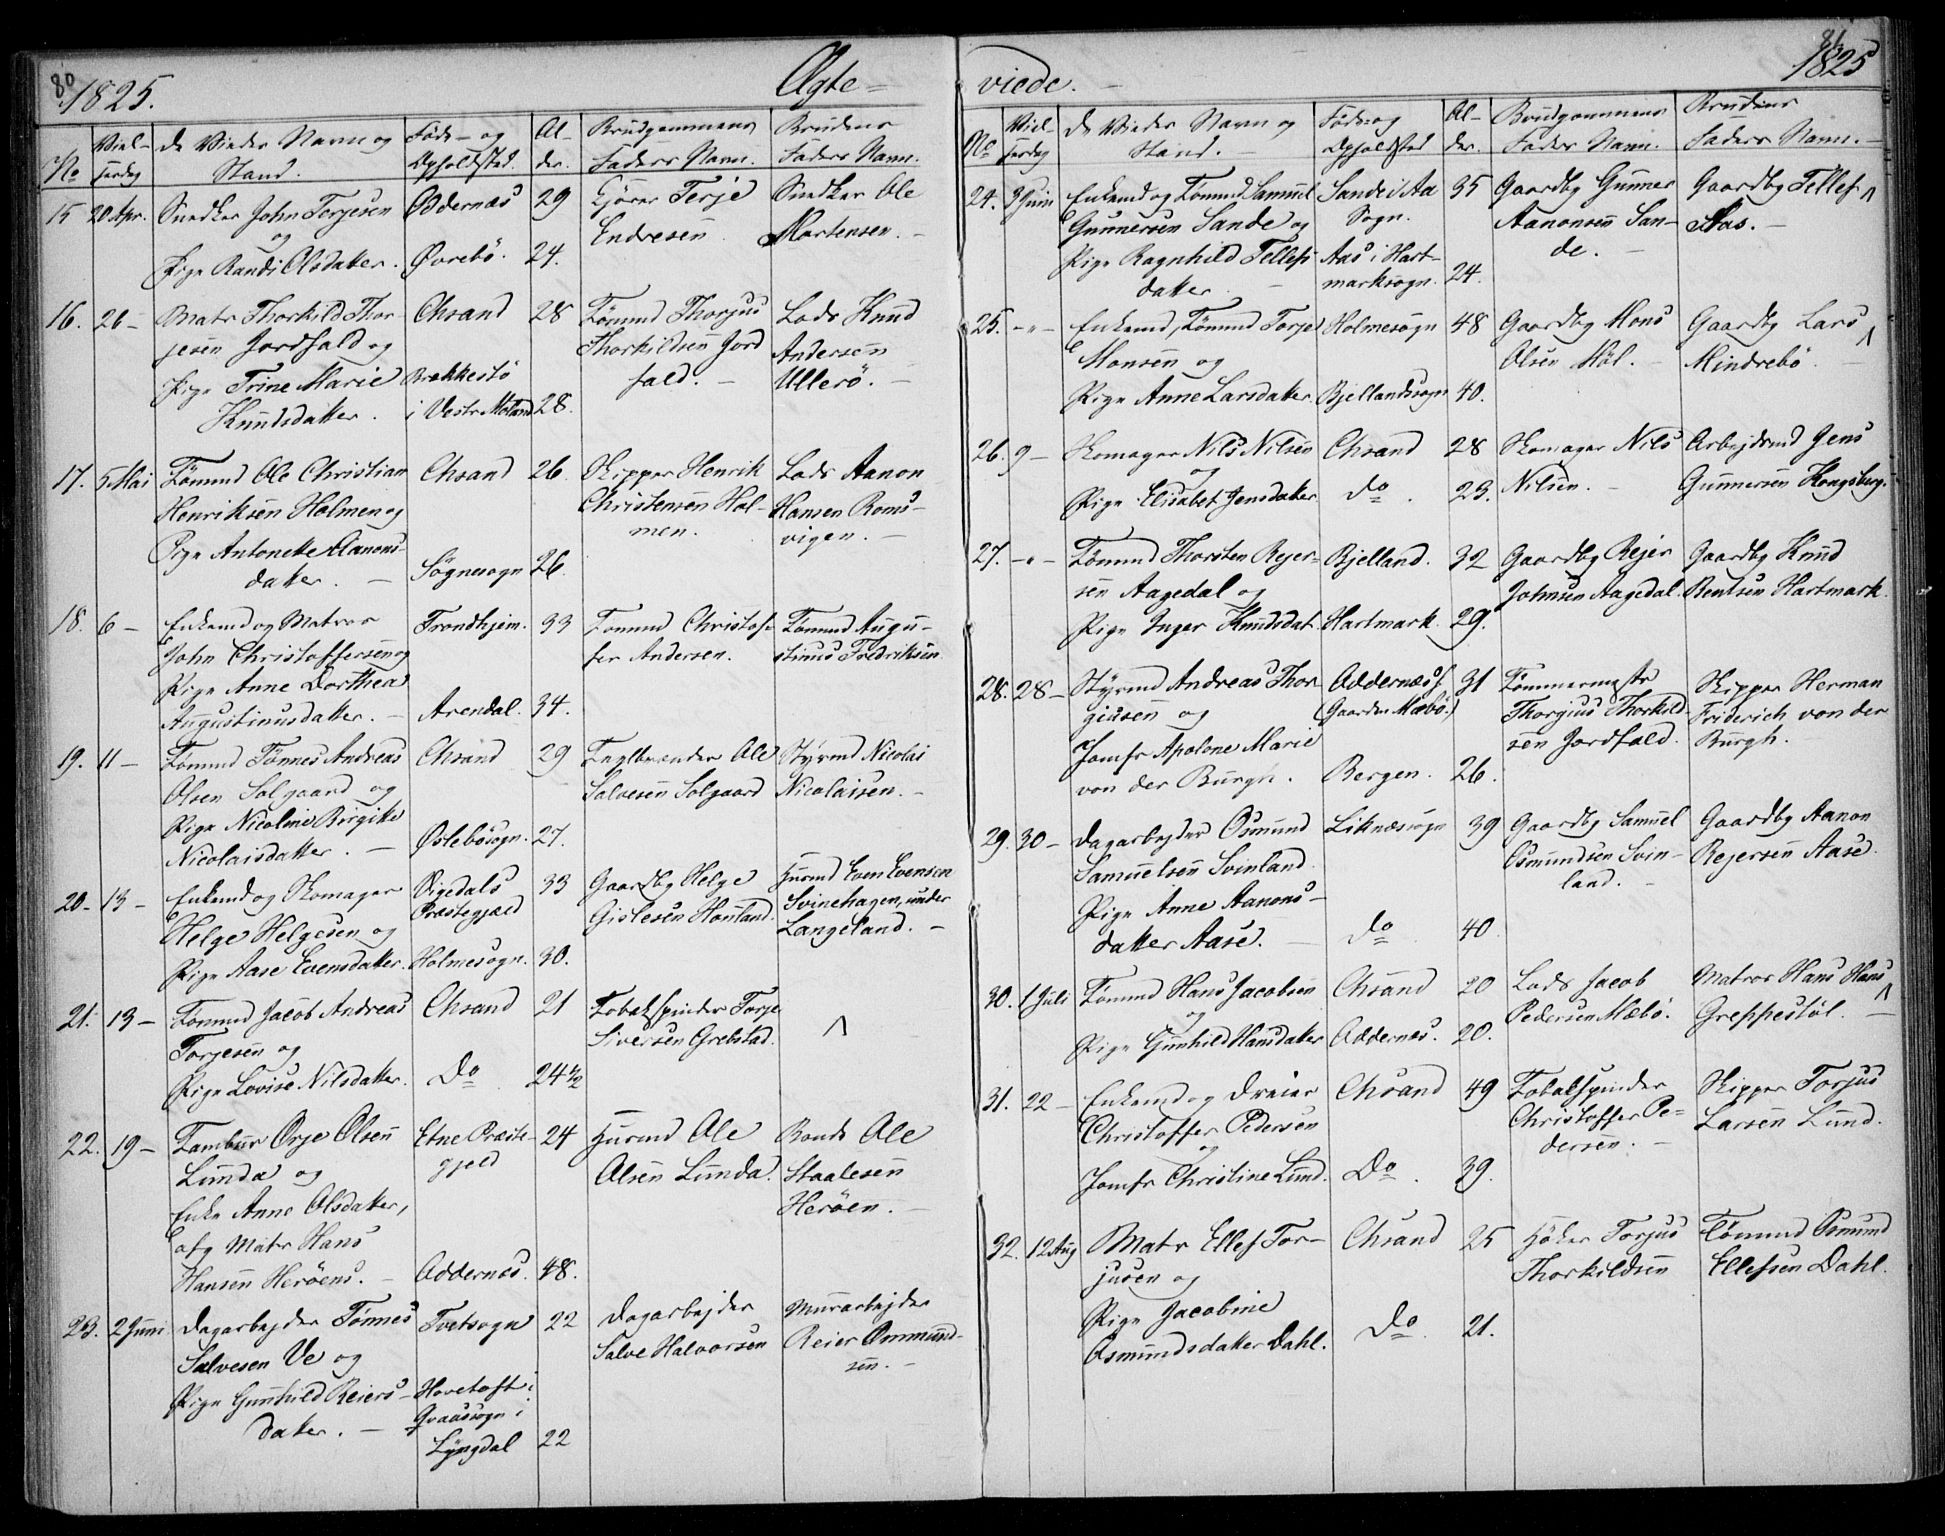 80
1825.
Ægte=
No
Viel-
sesdag
De Viedes Navn og
Stand.
Føde- og
Opholdsted.
Al-
der.
Brudgommens
Faders Navn.
Brudens
Faders Navn.
15
20 Apr.
Snedker John Terjesen
og
Pige Randi Olsdatter.
Oddernæs
Øvrebö.
29
24.
Terje
Endresen
Snedker Ole
Mortensen.
16.
26 –
Matr Thorkild Thor
jesen Jordfald og
Pige Trine Marie
Knudsdatter.
Chsand
Brekkestö
i Vestr Moland
28
28.
Tömmd Thorjus
Thorkildsen Jord
fald. –
Lods Knud
Andersen
Ullerö. –
17.
5 Mai
Tömmd Ole Christian
Henriksen Holmen og
Pige Antonette Aanons-
datter. –
Chsand
Sögnesogn
26
26.
Skipper Henrik
Christensen Hol-
men.
Lods Aanon
Hansen Roms-
vigen. –
18.
6 –
Enkemd og Matros
John Christoffersen og
Pige Anne Dorthea
Augustinusdatter. –
Trondhjem.
Arendal.
33
34.
Tömmd Christof-
fer Andersen.
Tömmd Augu-
stinus Fredriksen
19.
11 –
Tömmd Tönnes Andreas
Olsen Solgaard og
Pige Nicoline Birgitte
Nicolaisdatter. –
Chsand
Öslebösogn.
29
27.
Teglbrænder Ole
Salvesen Solgaard
Styrmd Nicolai
Nicolaisen. –
20.
13 –
Enkemd og Skomager
Helge Helgesen og
Pige Aase Evensdatter.
Præstegjæld
Holmesogn.
33
30.
Gaardbg Helge
Gislesen
Husmd Even Evensen
Svinehagen, under
Langeland. –
21.
13 –
Tömmd Jacob Andreas
Torjesen og
Pige Lovise Nilsdatter.
Chsand
Do
21
24 1/2
Tobakspinder Torje
Siversen Grebstad.
22.
19 –
Tambur Orje Olsen
Lunda og
Enke Anne Olsdatter,
efg Matr Hans
Hansen Heröens. –
Etne Præste-
gjeld
Oddernæs.
24
48.
Husmd Ole
Olsen Lunda.
Bonde Ole
Staalesen
Heröen. –
23.
2 Juni
Dagarbejder Tönnes
Salvesen Ve og
Pige Gunhild Reiers-
datter. –
Tvetsogn
Hovetoft i
Qvaassogn i
Lyngdal
22
22
Dagarbejder
Salve Halvorsen
Murarbejder
Reier Ommund-
sen. –
81
1825
viede. –
No
Viel-
sesdag
De Viedes Navn og
Stand. –
Føde og
Opholdsted
Al-
der.
Brudgommens
Fader Navn.
Brudens
Faders Navn. –
24.
3 Juni
Enkemd og Tömmd Samuel
Gunnersen Sande og
Pige Ragnhild Tellefs
datter. –
Sande i Aa
Sogn.
Aas i Hart-
marksogn.
35
24.
Gaardbg Gunner
Aanonsen San-
de. –
Gaardbg Tellef
Aas. –
25.
– " –
Enkemd, Tömmd Torje
Monsen og
Pige Anne Larsdatter
Holmesogn
Bjellandsogn
48
40.
Gaardbg Mons
Olsen Möl. –
Gaardbg Lars
Mindrebö. –
26.
9 –
Skomager Nils Nilsen
og
Pige Elisabet Jensdatter
Chsand
Do.
28
23.
Skomager Nils
Nilsen. –
Arbejdsmd Jens
Gunnersen Kongsberg.
27.
– " –
Tömmd Thorsten Rejer-
sen Aagedal og
Pige Inger Knudsdat.
Bjelland.
Hartmark
32
29.
Gaardbg Rejer
Johnsen Aagedal.
Gaardbg Knud
Bentsen Hartmark.
28.
28 –
Styrmd Andreas Thor
giusen og
Jomfr Apolone Marie
von der Burgh.
Oddernæs
(Gaarden Mæbö.)
Bergen.
31
26.
Tömmermestr
Thorgius Thorkild-
sen Jordfald.
Skipper Herman
Friderich von der
Burgh. –
29.
30 –
Dagarbejder Osmund
Samuelsen Svinland.
Pige Anne Aanons-
datter Aase. –
Liknæssogn
Do
39
40
Gaardbg Samuel
Osmundsen Svin-
land. –
Gaardbg Aanon
Rejersen Aase.
30.
1 Juli
Tömmd Hans Jacobsen
og
Pige Gunhild Hansdatter
Chsand
Oddernæs.
20
20.
Lods Jacob
Pedersen Mæbö.
Matros Hans Hans
Greppestöl. –
31.
22 –
Enkemd og Dreier
Christoffer Pedersen
og
Jomfr Christine Lund.
Chsand
Do.
49
39.
Tobakspinder
Christoffer Pe=
dersen. –
Skipper Torjus
Larsen Lund.
32.
12 Aug
Matr Ellef Tor-
jusen og
Pige Jacobine
Osmundsdatter Dahl.
Chsand
Do.
25
21.
Höker Torjus
Thorkildsen
Tömmd Osmund
Ellefsen Dahl.